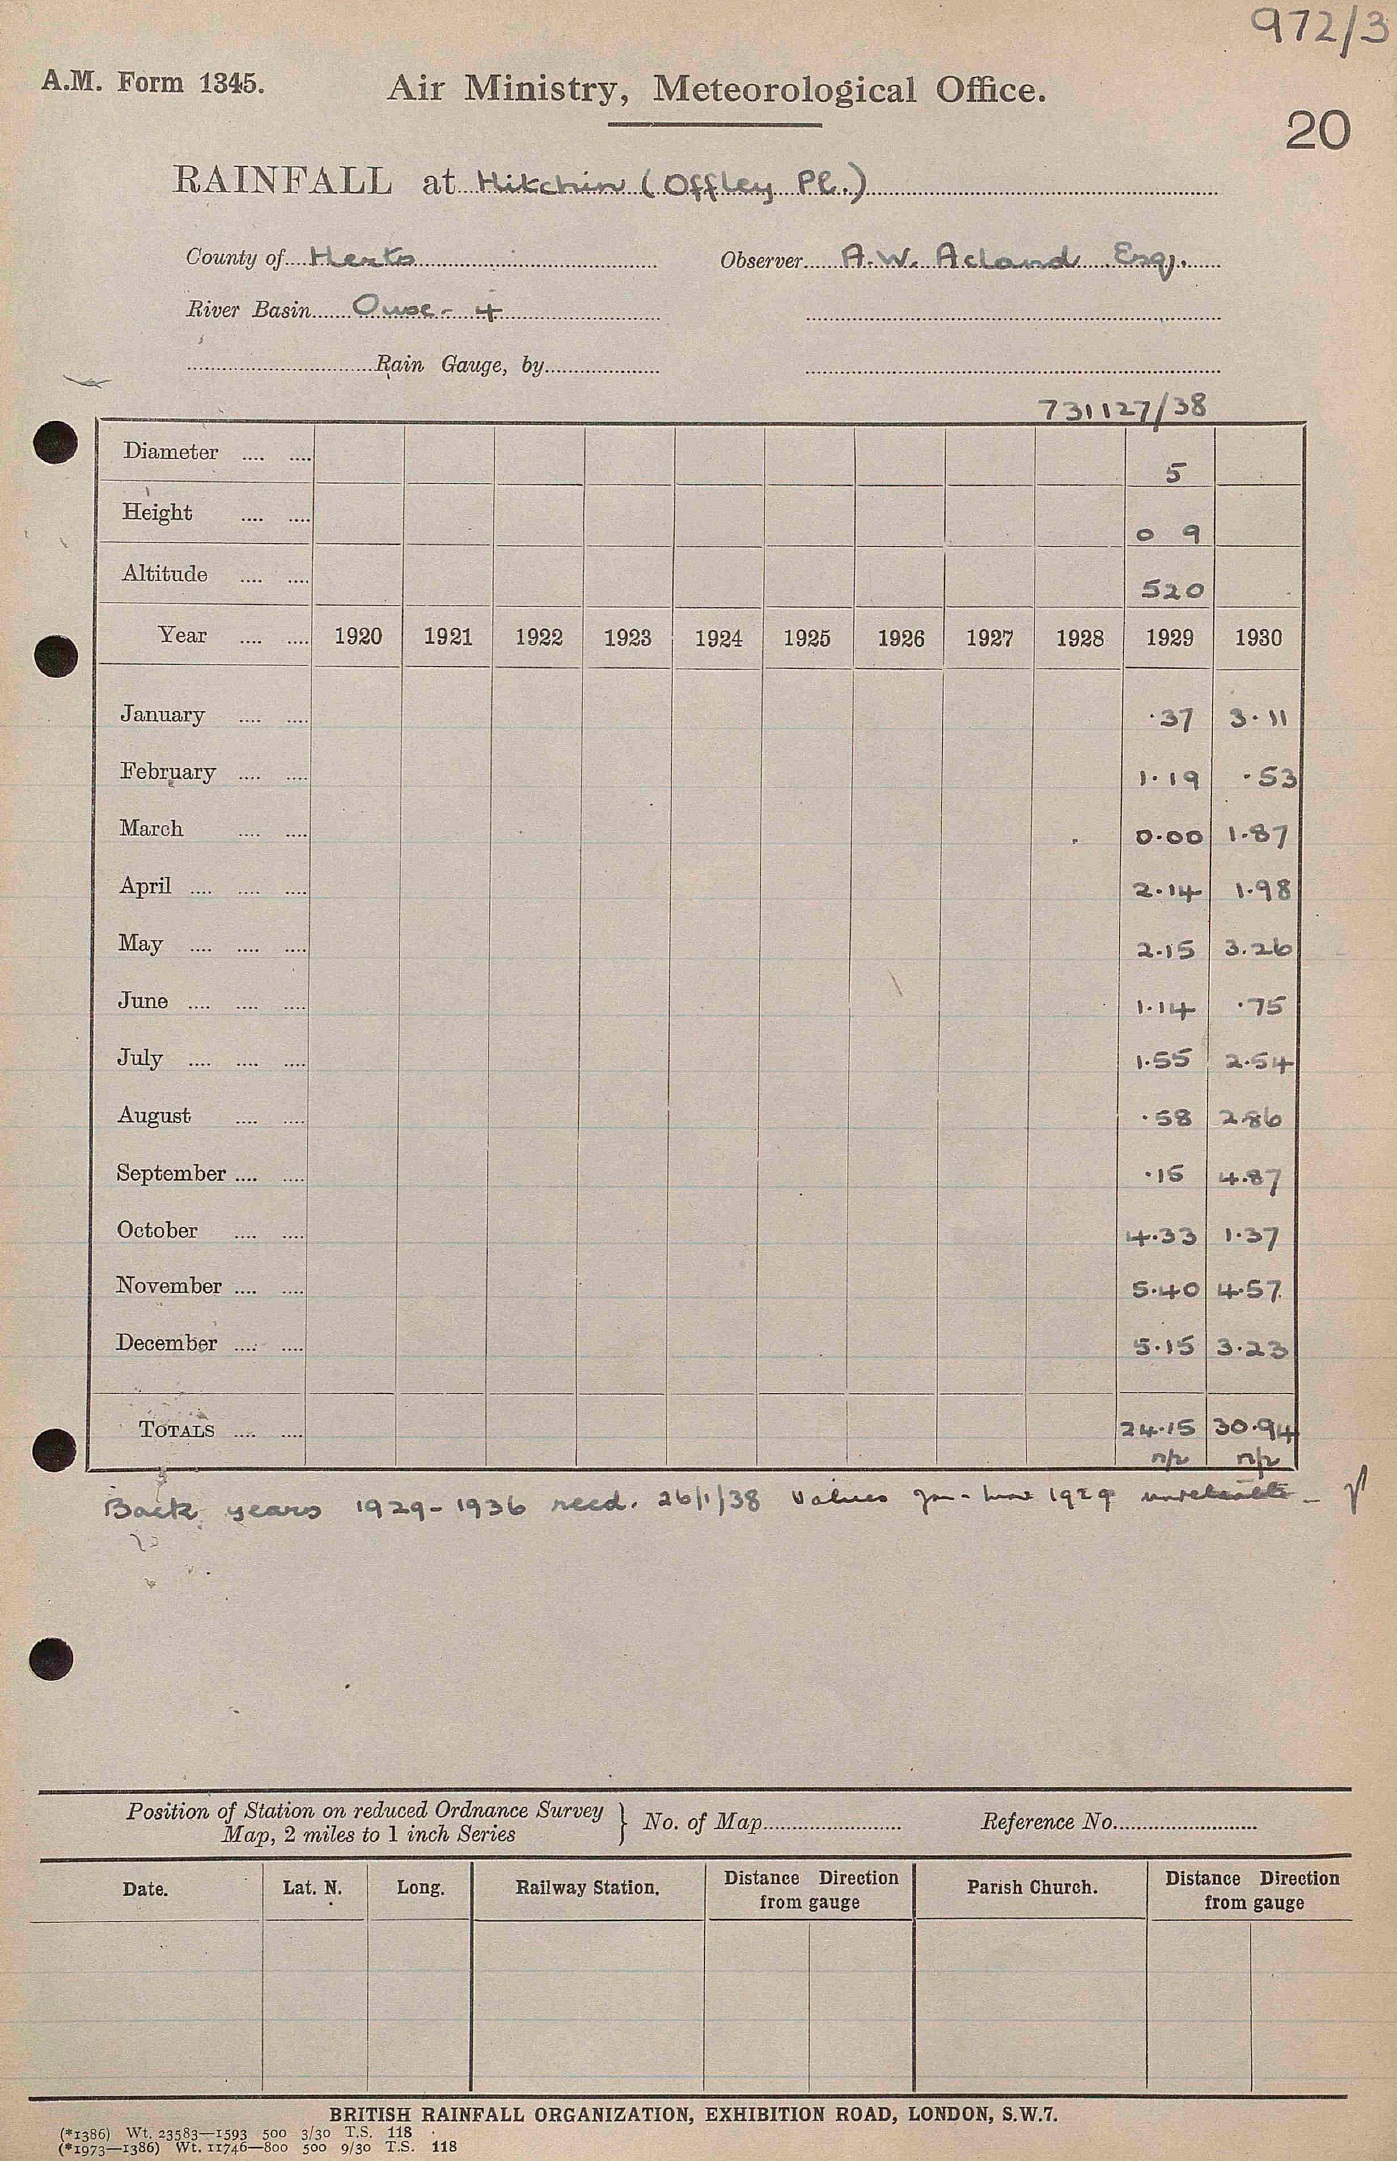 972/3
A.M. Form 1345. Air Ministry, Meteorological Office.
20
RAINFALL at Hitchin (Offley Pl.)
County of Herts Observer A.W. Acland Esq.
River Basin Ouse - 4
Rain Gauge, by
731127/38
Diameter .... .... 5
Height .... .... 0 9
Altitude .... .... 520
Year .... .... 1920 1921 1922 1923 1924 1925 1926 1927 1928 1929 1930
January .... .... ·37 3·11
February .... .... 1·19 ·53
March .... .... 0·00 1·87
April .... .... .... 2·14 1·98
May .... .... .... 2·15 3·26
June .... .... .... 1·14 ·75
July .... .... .... 1·55 2·54
August .... .... ·58 2·86
September .... .... ·15 4·87
October .... .... 4·33 1·37
November .... .... 5·40 4·57
December .... .... 5·15 3·23
TOTALS .... .... 24·15 30·94
n/p n/p
Back years 1929-1936 recd. 26/1/38 Values Jan - Mar 1929 unreliable -
Position of Station on reduced Ordnance Survey
Map, 2 miles to 1 inch Series } No. of Map Reference No.
Date. Lat. N. Long. Railway Station. Distance Direction from gauge Parish Church. Distance Direction from gauge
BRITISH RAINFALL ORGANIZATION, EXHIBITION ROAD, LONDON, S.W.7.
(*1386) Wt. 23583—1593 500 3/30 T.S. 118
(*1973—1386) Wt. 11746—800 500 9/30 T.S. 118